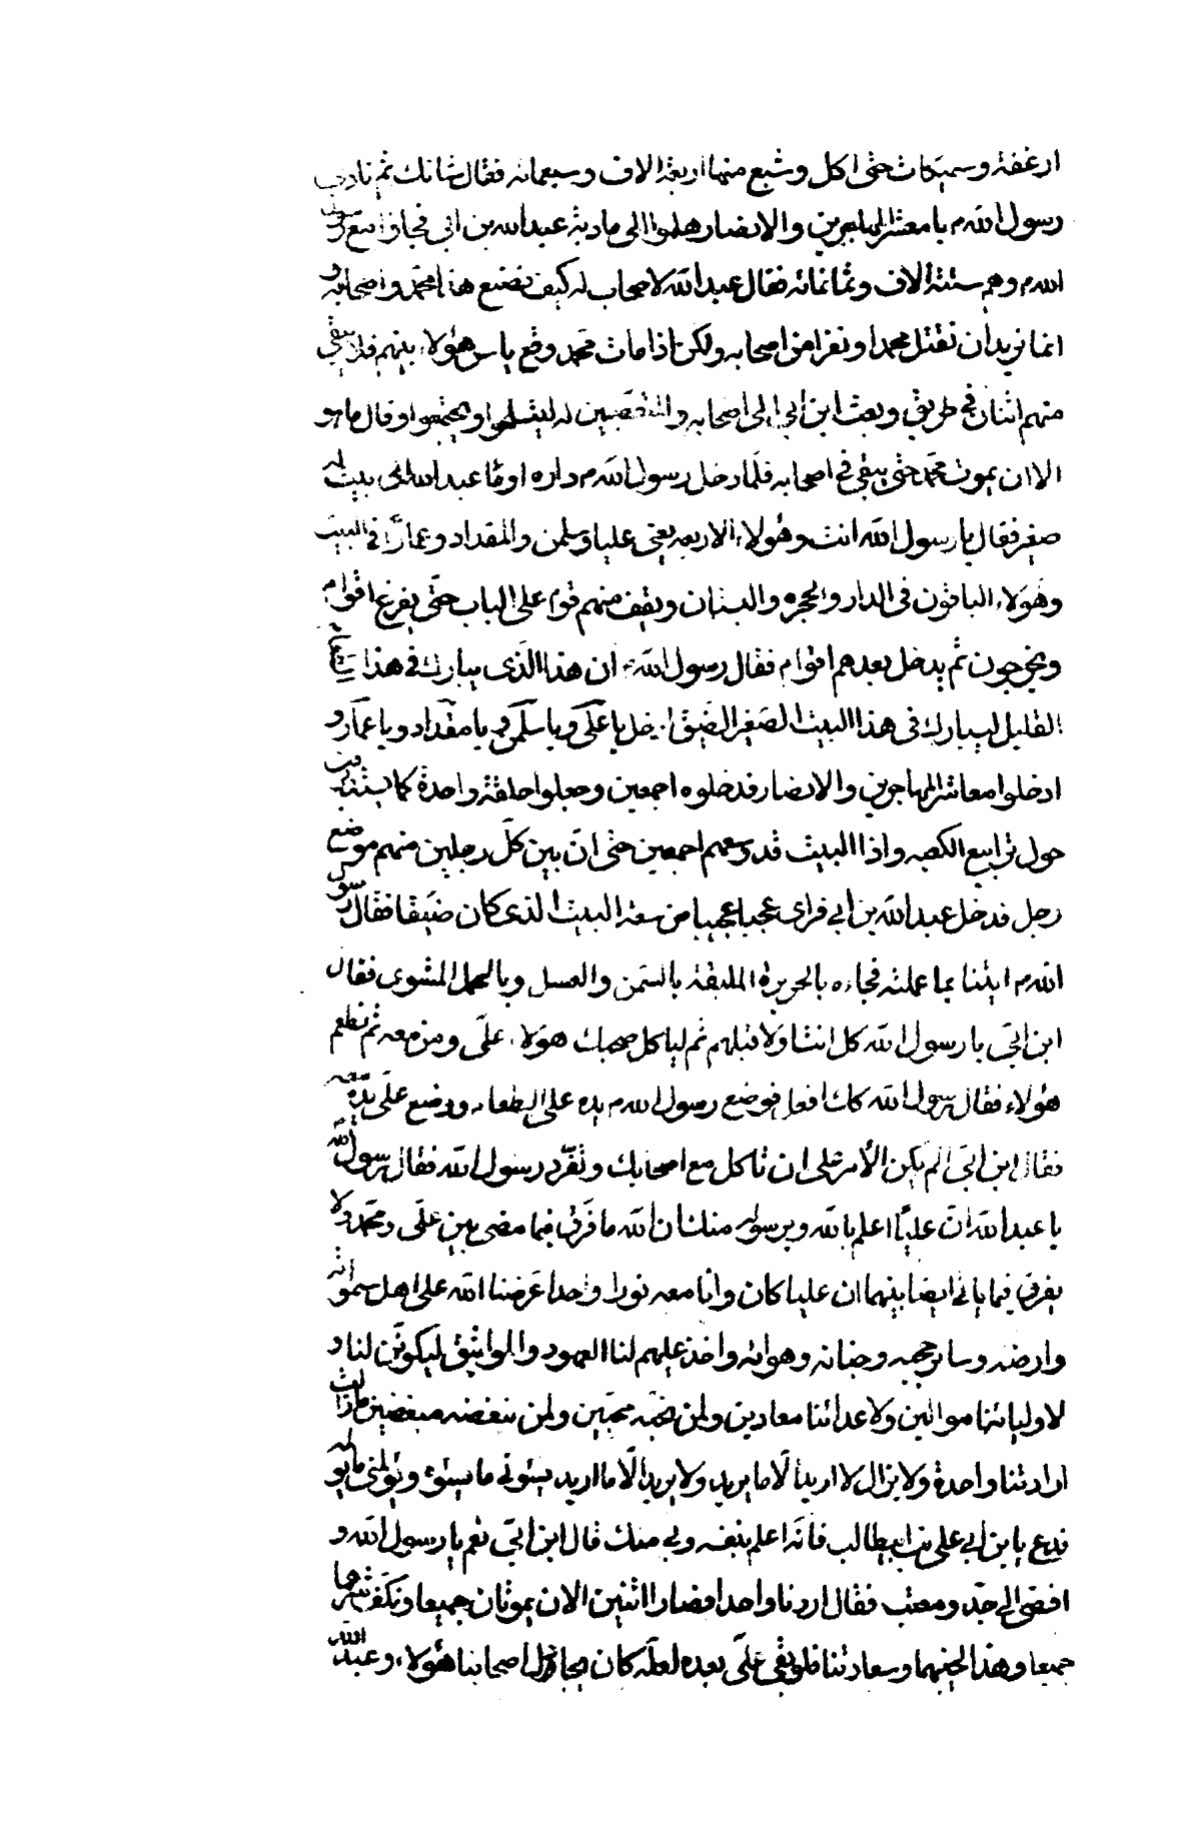 ارغفة وسميكات حتى اكل وشبع منها اربعة الاف وسبعمائة فقال شانك ثم نادى
رسول الله م يا معشر المهاجرين والانصار هلموا الى مادبة عبدالله بن ابي فجاؤا مع رسول
الله م وهم ستة آلاف وثمانمائة فقال عبدالله لاصحاب له كيف نصنع هذا محمد واصحابه و
انما نريد ان نقتل محمدا ونفرا من اصحابه ولكن اذا مات محمد وقع باس هؤلاء بينهم فلا يبقى
منهم اثنان في طريق وبعث ابن ابي الى اصحابه والمتعصبين له ليتسلحوا ويجتمعوا وقال ما هو
الا ان يموت محمد حتى يبقى في اصحابه فلما دخل رسول الله م داره اومأ عبدالله الى بيت له
صغير فقال يا رسول الله انت وهؤلاء الاربعه يعني عليا وسلمن والمقداد وعمارا في البيت
وهؤلاء الباقون في الدار والحجره والبستان ويقف منهم قوم على الباب حتى يفرغ اقوام
ويخرجون ثم يدخل بعدهم اقوام فقال رسول الله ان هذا الذي يبارك في هذا
القليل ليبارك في هذا البيت الصغير الضيق ادخل يا علي ويا سلمن ويا مقداد ويا عمار و
ادخلوا معاشر المهاجرين والانصار فدخلوه اجمعين وجعلوا حلقة واحدة كما يستديرون
حول ترابيع الكعبه واذا البيت قد وسعهم اجمعين حتى ان بين كل رجلين منهم موضع
رجل فدخل عبدالله بن ابي فراى عجبا عجيبا من سعة البيت الذى كان ضيقا فقال رسول
الله م ايتنا بما عملته فجاءه بالحريرة الملبقة بالسمن والعسل وبالحمل المشوى فقال
ابن ابي يا رسول الله كل انت اولا قبلهم ثم لياكل صحبك هؤلاء علي ومن معه ثم تطعم
هؤلاء فقال رسول الله كذلك افعل فوضع رسول الله م يده على الطعام ووضع علي يده معه
فقال ابن ابي الم يكن الأمر على ان تاكل مع اصحابك وتفرد رسول الله فقال رسول الله
يا عبدالله ان عليا اعلم بالله وبرسوله منك ان الله ما فرق فيما مضى بين علي ومحمد ولا
يفرق فيما ياتي ايضا بينهما ان عليا كان وانا معه نورا واحدا عرضنا الله على اهل سمواته
وارضه وساير حجبه وجنانه وهوائه واخذ عليهم لنا العهود والمواثيق ليكونن لنا و
لاوليائنا موالين ولاعدائنا معادين ولمن نحبه محبين ولمن نبغضه مبغضين ما زالت
ارادتنا واحدة ولا يزال لا اريد الا ما يريد ولا يريد الا ما اريد يسوني ما يسوءه ويؤلمني ما يؤلمه
فدع يا بن ابي علي بن ابيطالب فانه اعلم بنفسه وبي منك قال ابن ابي نعم يا رسول الله و
افضى الى جد ومعتب فقال اردنا واحدا فصارا اثنين الان يموتان جميعا ونكفى شرهما
جميعا وهذا لحينهما وسعادتنا فلو بقي علي بعده لعله كان يجادل اصحابنا هؤلاء وعبدالله